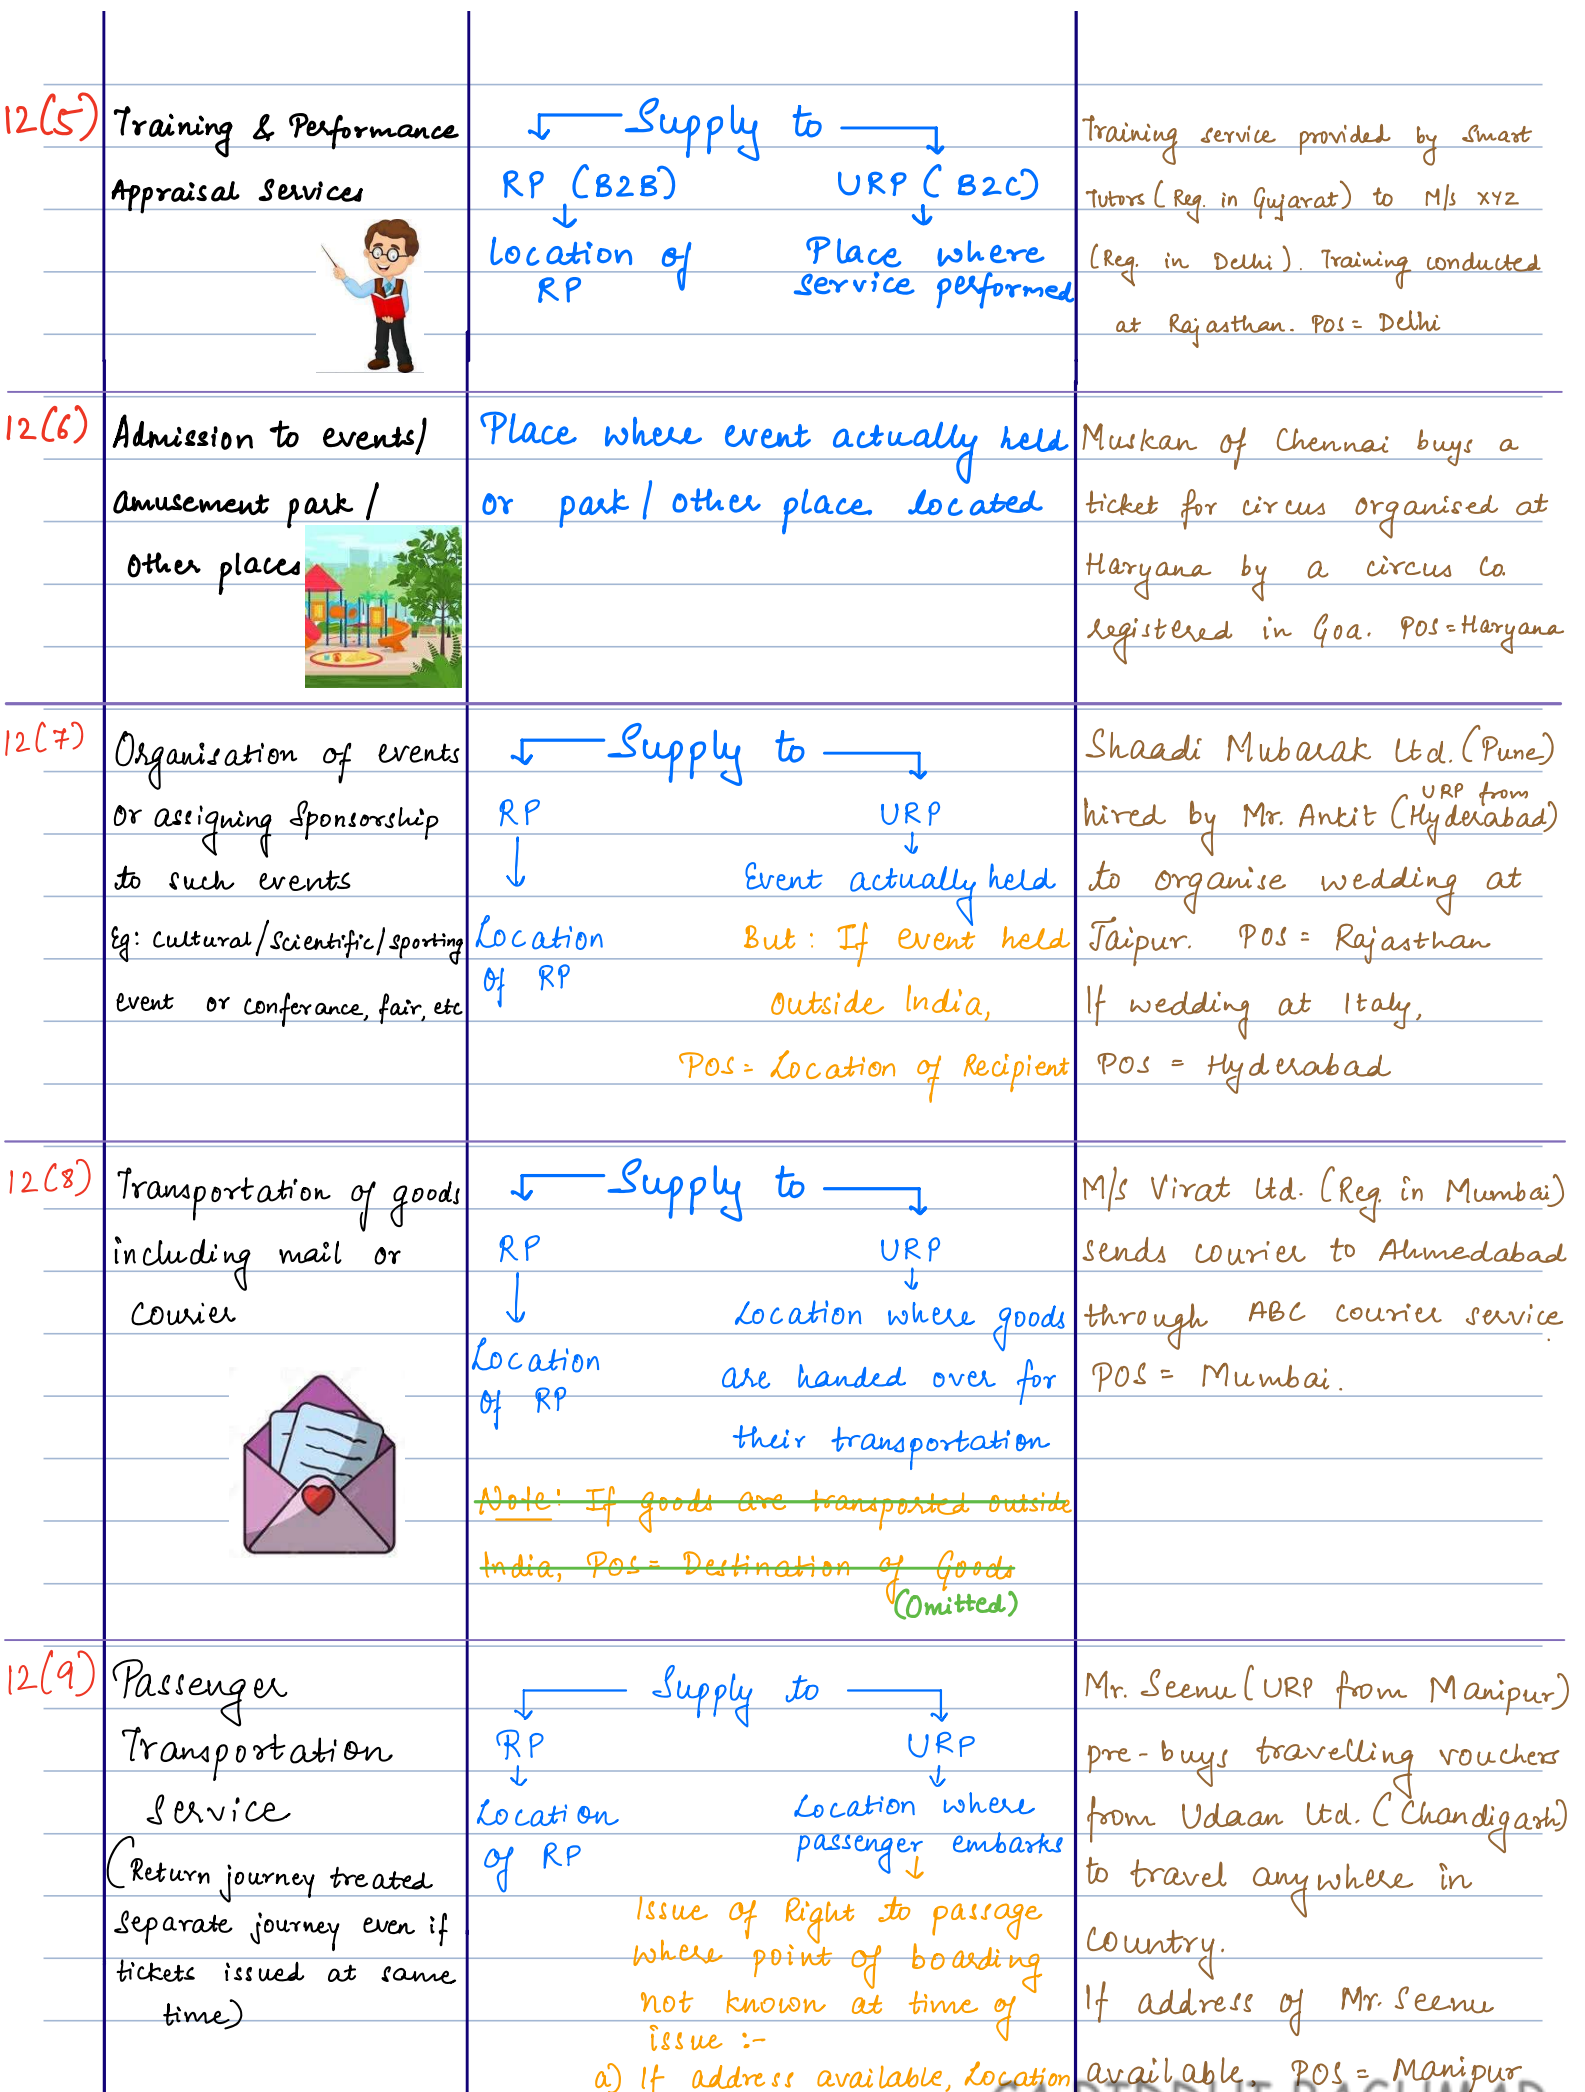 12(5)
Training & Performance
Appraisal Services
Supply to
RP (B2B)
URP (B2C)
Location of
RP
Place where
service performed
Training service provided by Smart
Tutors (Reg. in Gujarat) to M/s XYZ
(Reg. in Delhi). Training conducted
at Rajasthan. POS = Delhi
12(6)
Admission to events/
amusement park /
other places
Place where event actually held
or park / other place located
Muskan of Chennai buys a
ticket for circus organised at
Haryana by a circus Co.
registered in Goa. POS = Haryana
12(7)
Organisation of events
or assigning Sponsorship
to such events
Eg: Cultural/Scientific/sporting
event or conferance, fair, etc
Supply to
RP
URP
Location
of RP
Event actually held
But : If event held
outside India,
POS = Location of Recipient
Shaadi Mubarak Ltd. (Pune)
hired by Mr. Ankit (URP from Hyderabad)
to organise wedding at
Jaipur. POS = Rajasthan
If wedding at Italy,
POS = Hyderabad
12(8)
Transportation of goods
including mail or
courier
Supply to
RP
URP
Location
of RP
Location where goods
are handed over for
their transportation
Note: If goods are transported outside
India, POS = Destination of Goods
(Omitted)
M/s Virat Ltd. (Reg. in Mumbai)
sends courier to Ahmedabad
through ABC courier service.
POS = Mumbai.
12(9)
Passenger
Transportation
Service
(Return journey treated
separate journey even if
tickets issued at same
time)
Supply to
RP
URP
Location
of RP
Location where
passenger embarks
Issue of Right to passage
where point of boarding
not known at time of
issue :-
a) If address available, Location
Mr. Seenu (URP from Manipur)
pre-buys travelling vouchers
from Udaan Ltd. (Chandigarh)
to travel anywhere in
country.
If address of Mr. Seenu
available, POS = Manipur